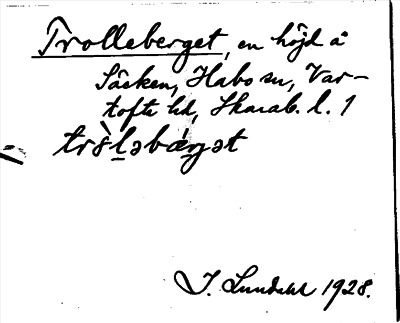 Trolleberget, en höjd å
Säcken, Habo sn, Var-
tofta hd, Skarab. l. 1
tròləbærjət
J. Lundahl 1928.